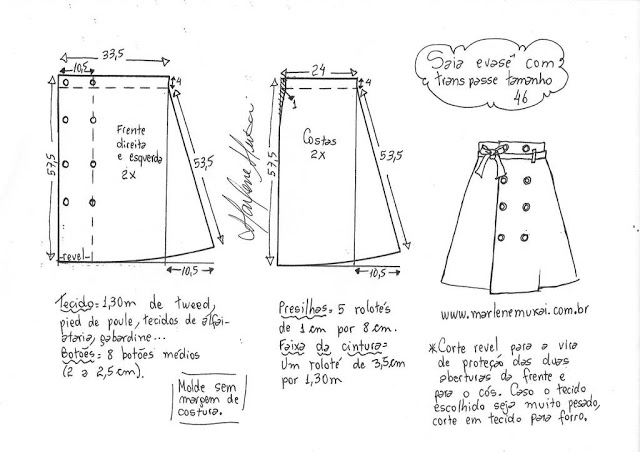 33,5
10,5
4
Frente
direita
e esquerda
2x
57,5
53,5
revel
10,5
Marlene Mukai
24
4
1
Costas
2x
57,5
53,5
10,5
Saia evasê com
transpasse tamanho
46
www.marlenemukai.com.br
Tecido= 1,30m de tweed,
pied de poule, tecidos de alfai-
ataria, gabardine...
Botões= 8 botões médios
(2 a 2,5cm).
Molde sem
margem de
costura.
Presilhas= 5 rolotés
de 1cm por 8cm.
Faixa da cintura=
Um roloté de 3,5cm
por 1,30m
*Corte revel para a vira
de proteção das duas
aberturas da frente e
para o cós. Caso o tecido
escolhido seja muito pesado,
corte em tecido para forro.